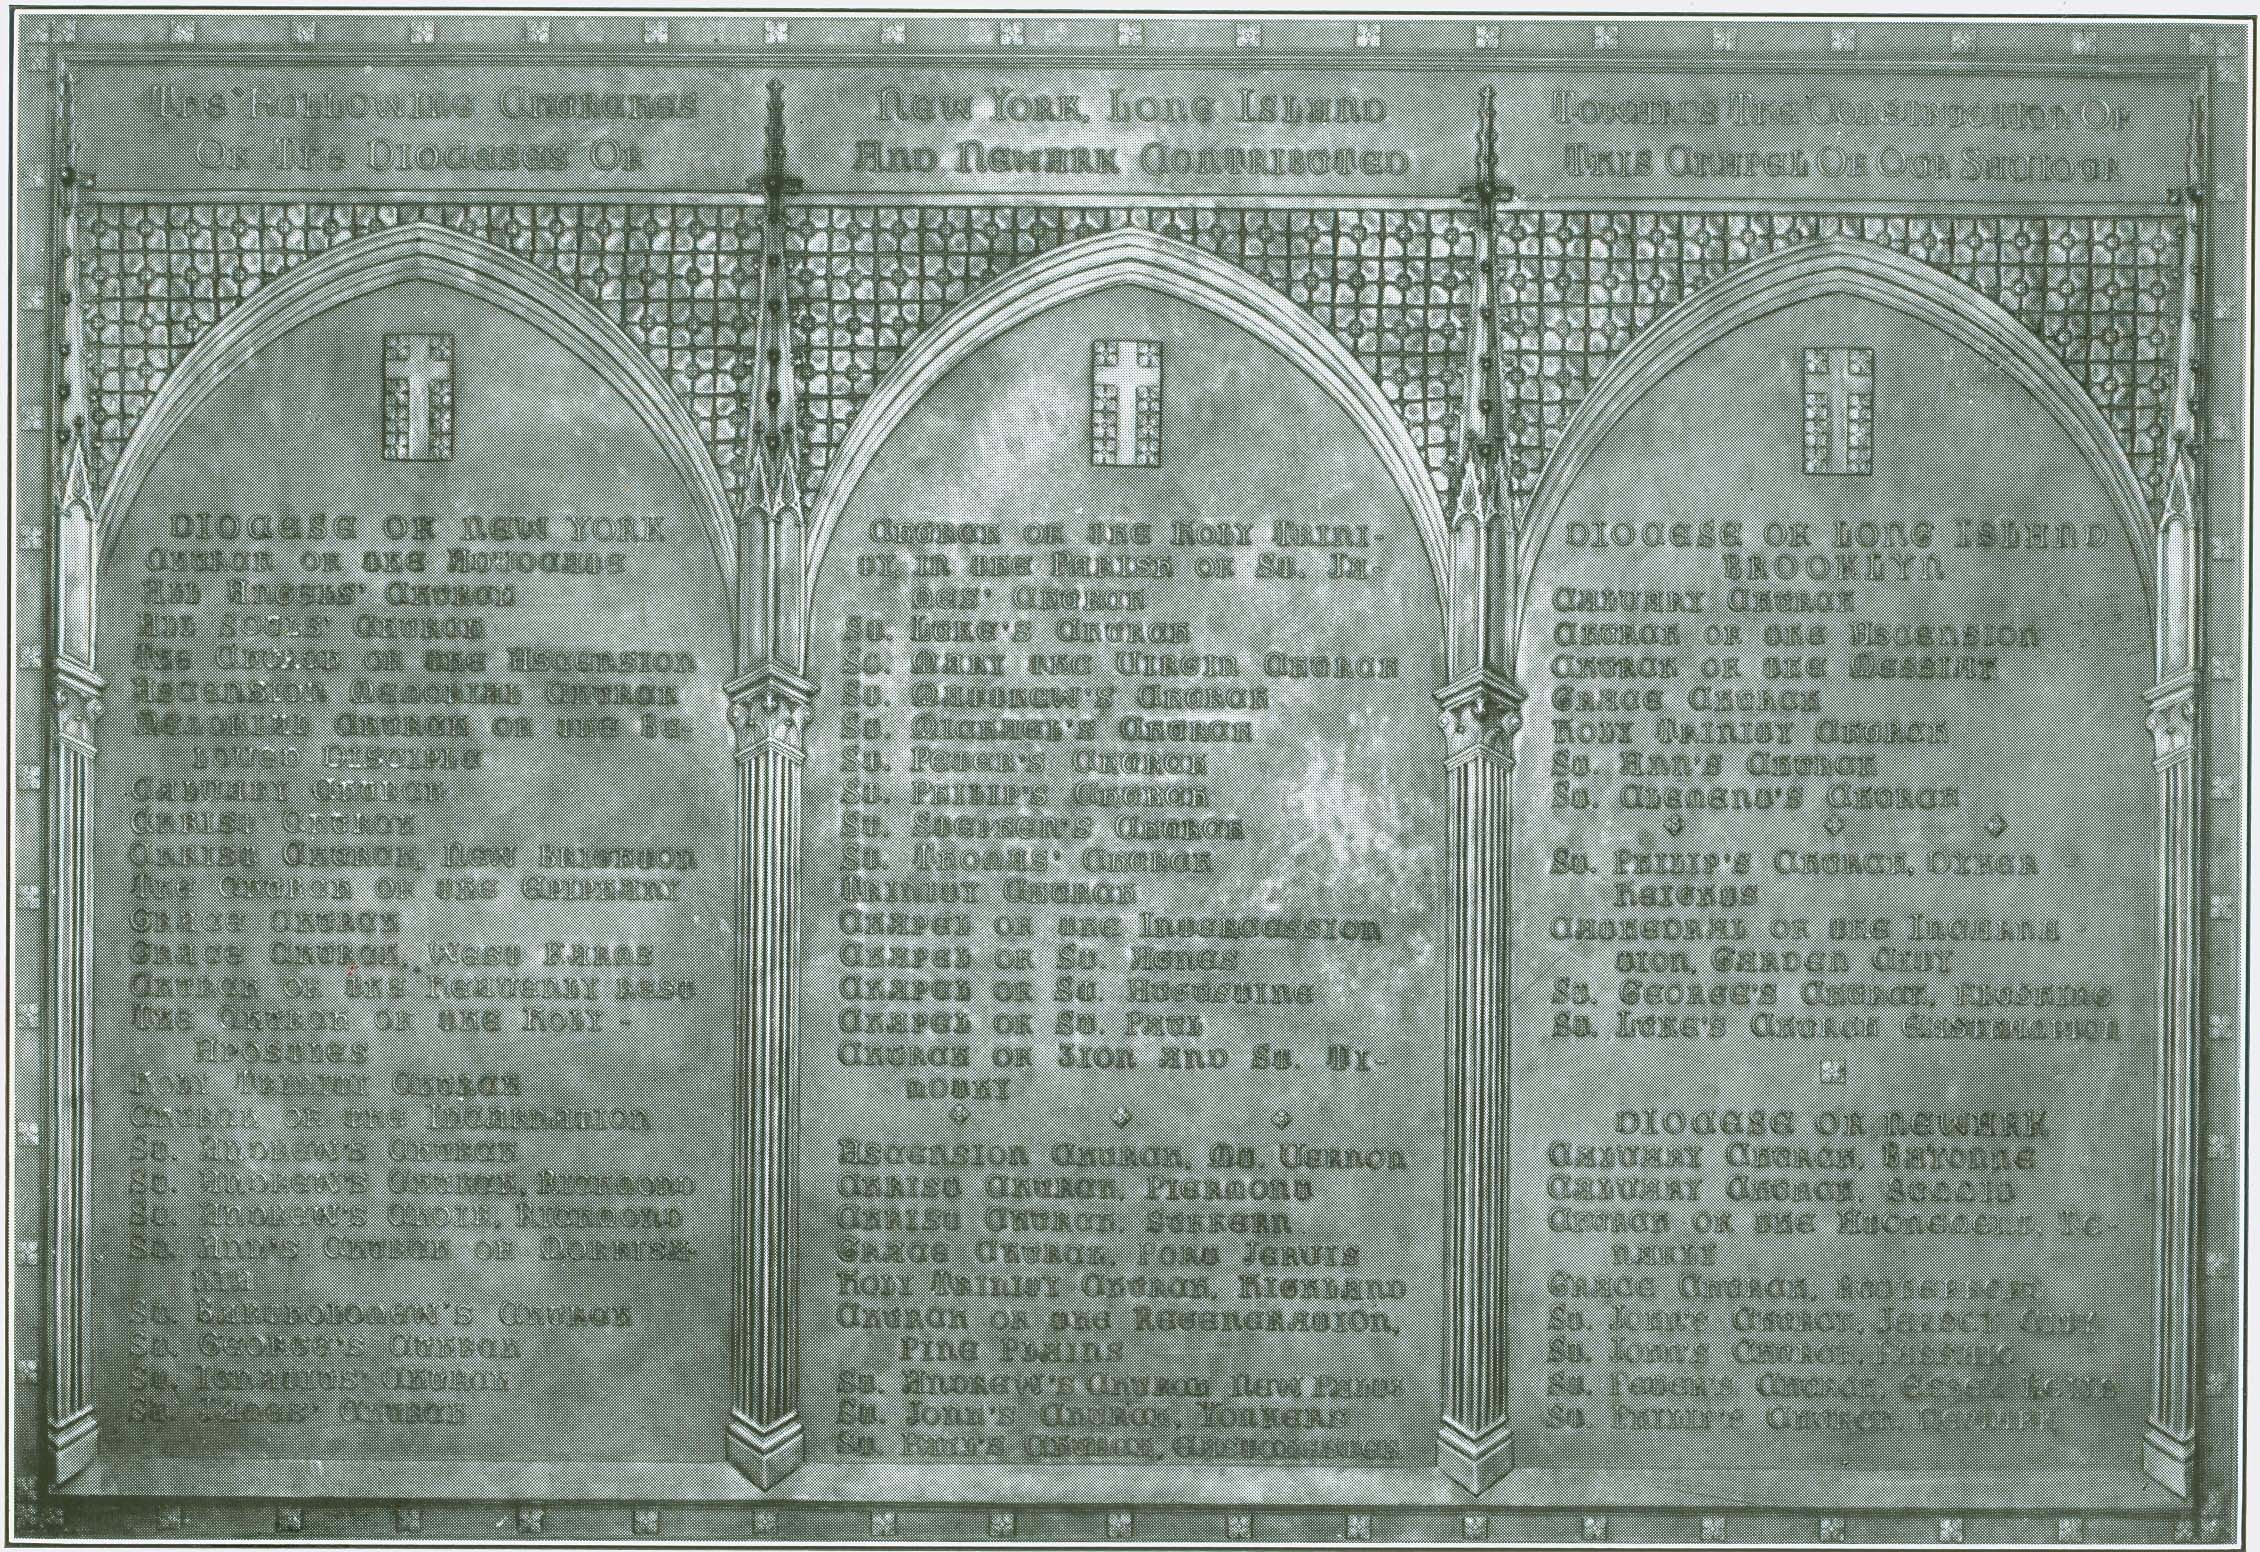 The Following Churches
Of The Dioceses Of
New York, Long Island
And Newark Contributed
Towards The Construction Of
This Chapel Of Our Saviour
Diocese of New York
Church of the Advocate
All Angels' Church
All Souls' Church
The Church of the Ascension
Ascension Memorial Church
Memorial Church of the Be-
loved Disciple
Calvary Church
Christ Church
Christ Church, New Brighton
The Church of the Epiphany
Grace Church
Grace Church, West Farms
Church of the Heavenly Rest
The Church of the Holy -
Apostles
Holy Trinity Church
Church of the Incarnation
St. Andrew's Church
St. Andrew's Church, Richmond
St. Andrew's Choir, Richmond
St. Ann's Church of Morrisa-
nia
St. Bartholomew's Church
St. George's Church
St. Ignatius' Church
St. James' Church
Church of the Holy Trini-
ty, in the Parish of St. Ja-
mes' Church
St. Luke's Church
St. Mary the Virgin Church
St. Matthew's Church
St. Michael's Church
St. Peter's Church
St. Philip's Church
St. Stephen's Church
St. Thomas' Church
Trinity Church
Chapel of the Intercession
Chapel of St. Agnes
Chapel of St. Augustine
Chapel of St. Paul
Church of Zion and St. Ti-
mothy
Ascension Church, Mt. Vernon
Christ Church, Piermont
Christ Church, Suffern
Grace Church, Port Jervis
Holy Trinity Church, Highland
Church of the Regeneration,
Pine Plains
St. Andrew's Church New Paltz
St. John's Church, Yonkers
St. Paul's Church, Eastchester
Diocese of Long Island
Brooklyn
Calvary Church
Church of the Ascension
Church of the Messiah
Grace Church
Holy Trinity Church
St. Ann's Church
St. Clement's Church
St. Philip's Church, Dyker
Heights
Cathedral of the Incarna -
tion, Garden City
St. George's Church, Flushing
St. Luke's Church
Diocese of Newark
Calvary Church, Bayonne
Calvary Church, Summit
Church of the Atonement, Te-
nafly
Grace Church, Rutherford
St. John's Church, Jersey City
St. John's Church, Passaic
St. Peter's Church, Essex Fells
St. Philip's Church, Newark